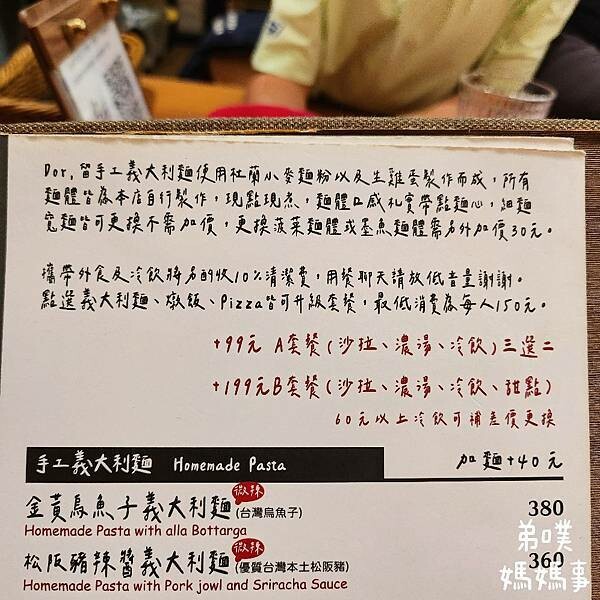 Dor,習手工義大利麵使用杜蘭小麥麵粉以及生雞蛋製作而成，所有
麵體皆為本店自行製作，現點現煮，麵體口感札實帶點麵心，細麵
寬麵皆可更換不需加價，更換菠菜麵體或墨魚麵體需另外加價30元。
攜帶外食及冷飲將另酌收10%清潔費，用餐聊天請放低音量謝謝。
點選義大利麵、燉飯、Pizza皆可升級套餐，最低消費為每人150元。
+99元 A套餐(沙拉、濃湯、冷飲)三選二
+199元B套餐(沙拉、濃湯、冷飲、甜點)
60元以上冷飲可補差價更換
手工義大利麵 Homemade Pasta 加麵+40元
金黃烏魚子義大利麵 微辣 (台灣烏魚子) 380
Homemade Pasta with alla Bottarga
松阪豬辣醬義大利麵 微辣 (優質台灣本土松阪豬) 360
Homemade Pasta with Pork jowl and Sriracha Sauce
弟噗
媽媽事